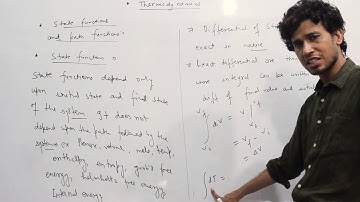 • Thermodynamics
State functions
and path functions
• State function :
State functions depend only
upon initial state and final state
of the system. It does not
depend upon the path followed by the
system ex Pressure, volume, mole, temp,
enthalpy, entropy, gibb's free
energy, helmholtz free energy
Internal energy
→ Differential of State
exact in nature
Exact differential are those
whose integral can be written
diff of final value and initial
∫ dV = V_f - V_i
= ΔV
∫ dT =